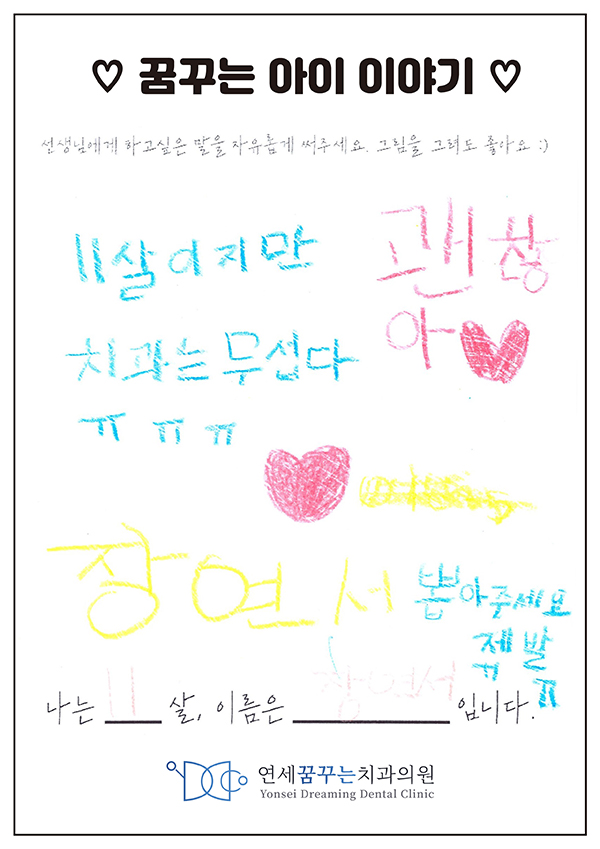 ♡ 꿈꾸는 아이 이야기 ♡
선생님에게 하고싶은 말을 자유롭게 써주세요. 그림을 그려도 좋아요 :)
11살이지만
치과는 무섭다
ㅠ ㅠ ㅠ
괜찮
아
장연서
뽑아주세요
제발
ㅠ ㅠ
나는 11 살, 이름은 장연서 입니다.
연세꿈꾸는치과의원
Yonsei Dreaming Dental Clinic